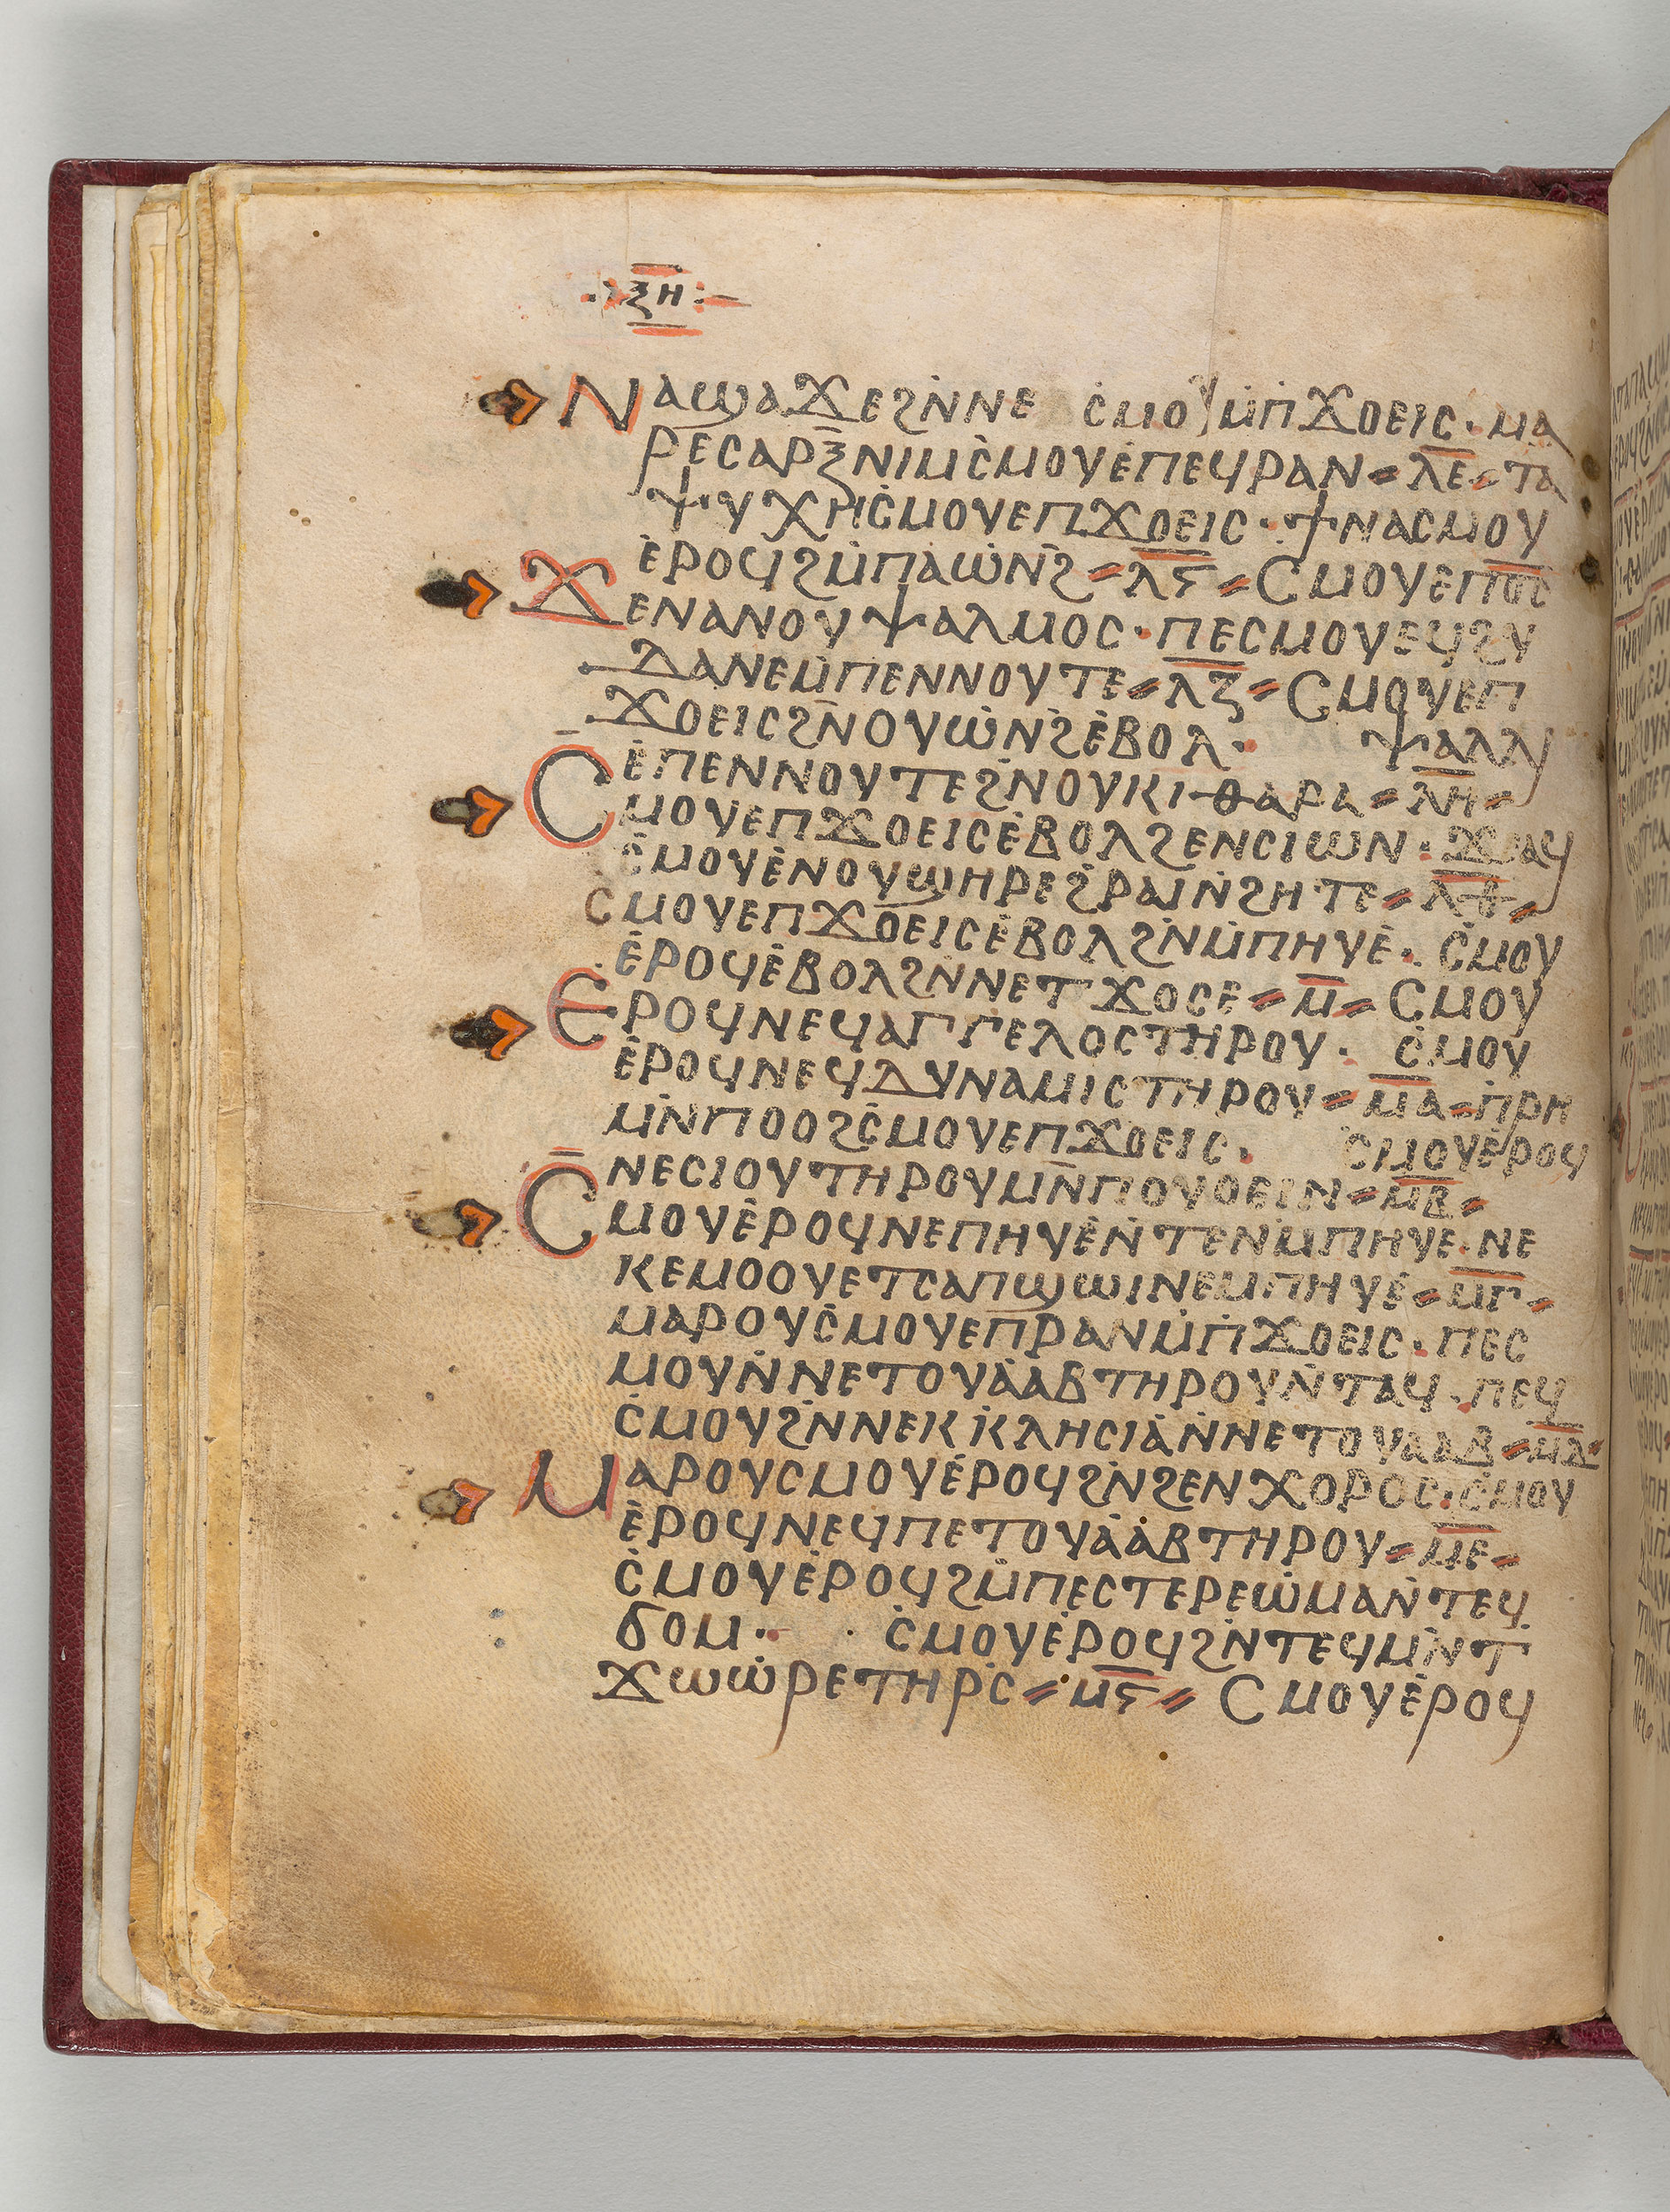 ⲝⲏ
Ⲛⲁϣⲁϫⲉϩⲛ̇ⲛⲉ ⲥ̇ⲙⲟⲩⲙ̇ⲡ̇ϫⲟⲉⲓⲥ · ⲙⲁ
ⲣⲉⲥⲁⲣⲝ̄ⲛⲓⲙⲥ̇ⲙⲟⲩⲉ̇ⲡⲉϥⲣⲁⲛ = ⲗ̄ⲉ̄ = ⲧⲁ
ⲯⲩⲭⲏⲥ̇ⲙⲟⲩⲉⲡϫⲟⲉⲓⲥ · ϯⲛⲁⲥⲙⲟⲩ
ⲉ̇ⲣⲟϥϩⲙ̇ⲡⲁⲱ̇ⲛ̇ϩ = ⲗ̄ⲋ̄ = Ⲥⲙⲟⲩⲉⲡⲟ̄ⲥ̄
Ϫⲉⲛⲁⲛⲟⲩⲯⲁⲗⲙⲟⲥ · ⲡⲉⲥⲙⲟⲩⲉϥϩⲩ
ⲇⲁⲛⲉⲙ̇ⲡⲉⲛⲛⲟⲩⲧⲉ = ⲗ̄ⲍ̄ = Ⲥⲙⲟⲩⲉⲡ
ϫⲟⲉⲓⲥϩⲛ̇ⲟⲩⲱ̇ⲛ̇ϩⲉ̇ⲃⲟⲗ · ⲯⲁⲗⲗⲓ
ⲉ̇ⲡⲉⲛⲛⲟⲩⲧⲉϩⲛ̇ⲟⲩⲕⲓⲑⲁⲣⲁ = ⲗ̄ⲏ̄ =
Ⲥ̄ⲙⲟⲩⲉⲡϫⲟⲉⲓⲥⲉ̇ⲃⲟⲗϩⲉⲛⲥⲓⲱⲛ ·
ⲥ̇ⲙⲟⲩⲉ̇ⲛⲟⲩϣⲏⲣⲉϩ̇ⲣⲁⲓⲛ̇ϩⲏⲧⲉ = ⲗ̄ⲑ̄ =
ⲥⲙⲟⲩⲉⲡϫⲟⲉⲓⲥⲉ̇ⲃⲟⲗϩⲛ̇ⲙ̇ⲡⲏⲩⲉ̇ · ⲥ̇ⲙⲟⲩ
ⲉ̇ⲣⲟϥⲉ̇ⲃⲟⲗϩⲛ̇ⲛⲉⲧϫⲟⲥⲉ = ⲙ̄ = Ⲥⲙⲟⲩ
Ⲉⲣⲟϥⲛⲉϥⲁⲅⲅⲉⲗⲟⲥⲧⲏⲣⲟⲩ · ⲥ̇ⲙⲟⲩ
ⲉ̇ⲣⲟϥⲛⲉϥⲇⲩⲛⲁⲙⲓⲥⲧⲏⲣⲟⲩ = ⲙ̄ⲁ̄ = ⲡ̇ⲣⲏ
ⲙ̇ⲛ̇ⲡⲟⲟϩⲥ̇ⲙⲟⲩⲉⲡϫⲟⲉⲓⲥ · ⲥ̇ⲙⲟⲩⲉ̇ⲣⲟϥ
ⲛⲉⲥⲓⲟⲩⲧⲏⲣⲟⲩⲙⲛ̄ⲡⲟⲩⲟⲉⲓⲛ = ⲙ̄ⲃ̄ =
Ⲥ̄ⲙⲟⲩⲉ̇ⲣⲟϥⲛⲉⲡⲏⲩⲉ̇ⲛ̇ⲧⲉⲛⲙ̇ⲡⲏⲩⲉ · ⲛⲉ
ⲕⲉⲙⲟⲟⲩⲉⲧⲥⲁⲡϣⲱⲓⲛⲉⲙⲡⲏⲩⲉ̇ = ⲙ̄ⲅ̄ =
ⲙⲁⲣⲟⲩⲥ̇ⲙⲟⲩⲉⲡⲣⲁⲛⲙ̇ⲡ̇ϫⲟⲉⲓⲥ · ⲡⲉⲥ
ⲙⲟⲩⲛ̇ⲛⲉⲧⲟⲩⲁ̇ⲁⲃⲧⲏⲣⲟⲩⲛ̇ⲧⲁϥ · ⲡⲉϥ
ⲥ̇ⲙⲟⲩϩⲛ̇ⲛⲉⲕⲕ̇ⲗⲏⲥⲓⲁ̇ⲛ̇ⲛⲉⲧⲟⲩⲁⲁⲃ = ⲙ̄ⲇ̄
Ⲙⲁⲣⲟⲩⲥⲙⲟⲩⲉ̇ⲣⲟϥϩⲛ̇ϩⲉⲛⲭⲟⲣⲟⲥ · ⲥ̇ⲙⲟⲩ
ⲉ̇ⲣⲟϥⲛⲉϥⲡⲉⲧⲟⲩⲁ̇ⲁ̇ⲃⲧⲏⲣⲟⲩ = ⲙ̄ⲉ̄ =
ⲥ̇ⲙⲟⲩⲉ̇ⲣⲟϥϩⲙ̇ⲡⲉⲥⲧⲉⲣⲉⲱ̇ⲙⲁⲛ̇ⲧⲉϥ
ϭⲟⲙ · ⲥ̇ⲙⲟⲩⲉ̇ⲣⲟϥϩⲛ̇ⲧⲉϥⲙⲛ̇ⲧ
ϫⲱⲱ̇ⲣⲉⲧⲏⲣⲥ̇ = ⲙ̄ⲋ̄ = Ⲥⲙⲟⲩⲉ̇ⲣⲟϥ